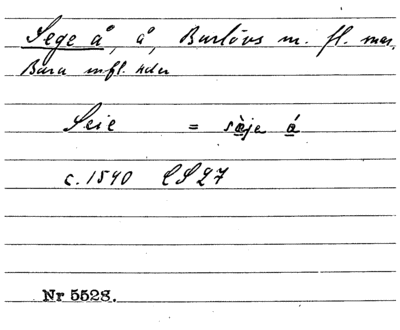 Sege å, å, Burlövs m. fl. snr.
Bara m fl. hdr
Seie = sàje á
c. 1540 CS 27
Nr 5528.